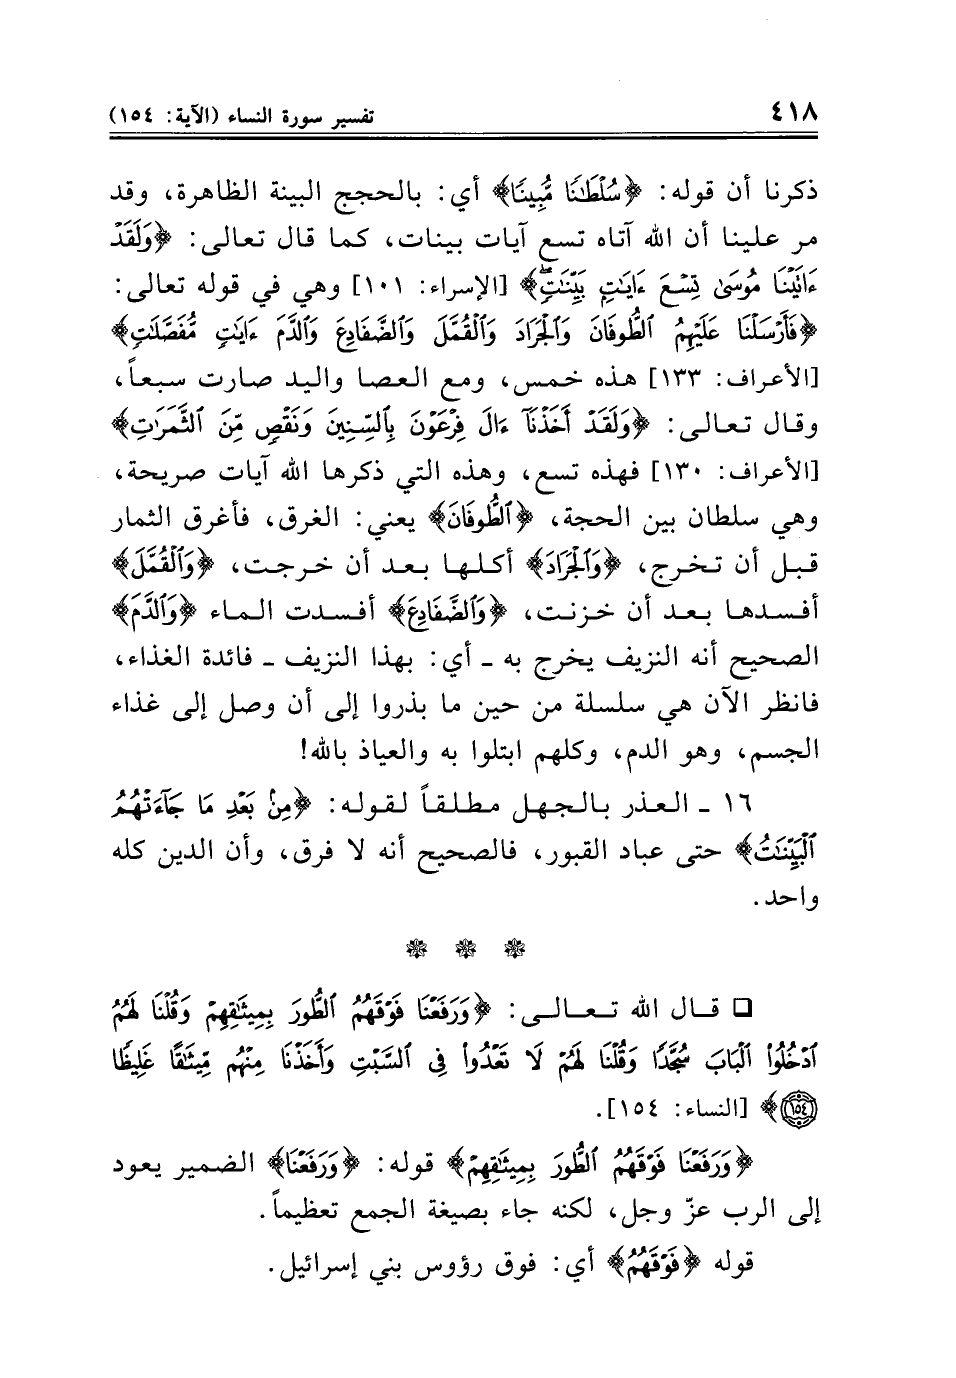 ٤١٨ تفسير سورة النساء (الآية: ١٥٤)
ذكرنا أن قوله: ﴿سُلْطَٰنًا مُّبِينًا﴾ أي: بالحجج البينة الظاهرة، وقد
مر علينا أن الله آتاه تسع آيات بينات، كما قال تعالى: ﴿وَلَقَدْ
ءَاتَيْنَا مُوسَىٰ تِسْعَ ءَايَٰتٍۭ بَيِّنَٰتٍۖ﴾ [الإسراء: ١٠١] وهي في قوله تعالى:
﴿فَأَرْسَلْنَا عَلَيْهِمُ ٱلطُّوفَانَ وَٱلْجَرَادَ وَٱلْقُمَّلَ وَٱلضَّفَادِعَ وَٱلدَّمَ ءَايَٰتٍ مُّفَصَّلَٰتٍ﴾
[الأعراف: ١٣٣] هذه خمس، ومع العصا واليد صارت سبعاً،
وقال تعالى: ﴿وَلَقَدْ أَخَذْنَآ ءَالَ فِرْعَوْنَ بِٱلسِّنِينَ وَنَقْصٍ مِّنَ ٱلثَّمَرَٰتِ﴾
[الأعراف: ١٣٠] فهذه تسع، وهذه التي ذكرها الله آيات صريحة،
وهي سلطان بين الحجة، ﴿ٱلطُّوفَانَ﴾ يعني: الغرق، فأغرق الثمار
قبل أن تخرج، ﴿وَٱلْجَرَادَ﴾ أكلها بعد أن خرجت، ﴿وَٱلْقُمَّلَ﴾
أفسدها بعد أن خزنت، ﴿وَٱلضَّفَادِعَ﴾ أفسدت الماء ﴿وَٱلدَّمَ﴾
الصحيح أنه النزيف يخرج به ـ أي: بهذا النزيف ـ فائدة الغذاء،
فانظر الآن هي سلسلة من حين ما بذروا إلى أن وصل إلى غذاء
الجسم، وهو الدم، وكلهم ابتلوا به والعياذ بالله!
١٦ ـ العذر بالجهل مطلقاً لقوله: ﴿مِنۢ بَعْدِ مَا جَآءَتْهُمُ
ٱلْبَيِّنَٰتُ﴾ حتى عباد القبور، فالصحيح أنه لا فرق، وأن الدين كله
واحد.
❁ ❁ ❁
❑ قال الله تعالى: ﴿وَرَفَعْنَا فَوْقَهُمُ ٱلطُّورَ بِمِيثَٰقِهِمْ وَقُلْنَا لَهُمُ
ٱدْخُلُوا۟ ٱلْبَابَ سُجَّدًا وَقُلْنَا لَهُمْ لَا تَعْدُوا۟ فِى ٱلسَّبْتِ وَأَخَذْنَا مِنْهُم مِّيثَٰقًا غَلِيظًا
١٥٤﴾ [النساء: ١٥٤].
﴿وَرَفَعْنَا فَوْقَهُمُ ٱلطُّورَ بِمِيثَٰقِهِمْ﴾ قوله: ﴿وَرَفَعْنَا﴾ الضمير يعود
إلى الرب عزّ وجل، لكنه جاء بصيغة الجمع تعظيماً.
قوله ﴿فَوْقَهُمُ﴾ أي: فوق رؤوس بني إسرائيل.